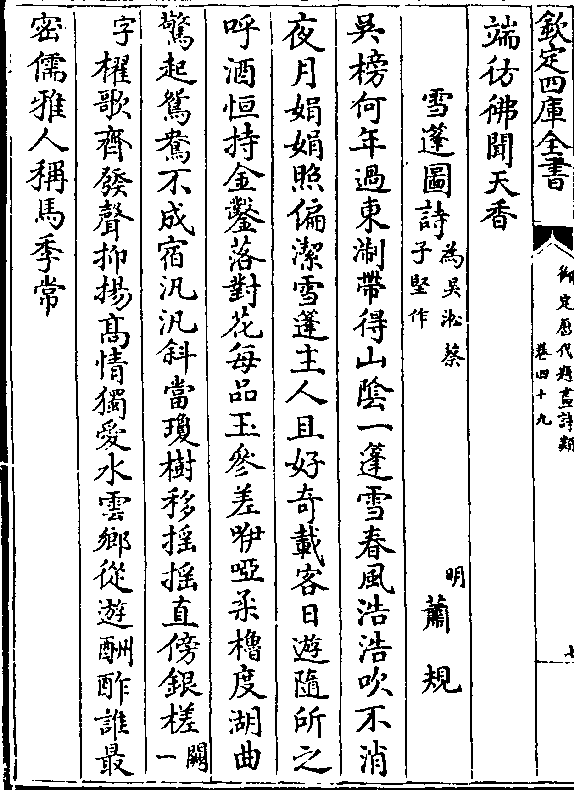 欽定四庫全書
御定歷代題畫詩類
卷四十九
七
端彷彿聞天香
雪蓬圖詩為吳淞蔡子堅作
明 蕭規
吳榜何年過東淛帶得山陰一蓬雪春風浩浩吹不消
夜月娟娟照偏潔雪蓬主人且好奇載客日遊隨所之
呼酒恒持金鑿落對花每品玉參差咿啞柔櫓度湖曲
驚起鴛鴦不成宿汎汎斜當瓊樹移搖搖直傍銀槎闕一
字櫂歌齊發聲抑揚高情獨愛水雲鄉從遊酬酢誰最
密儒雅人稱馬季常